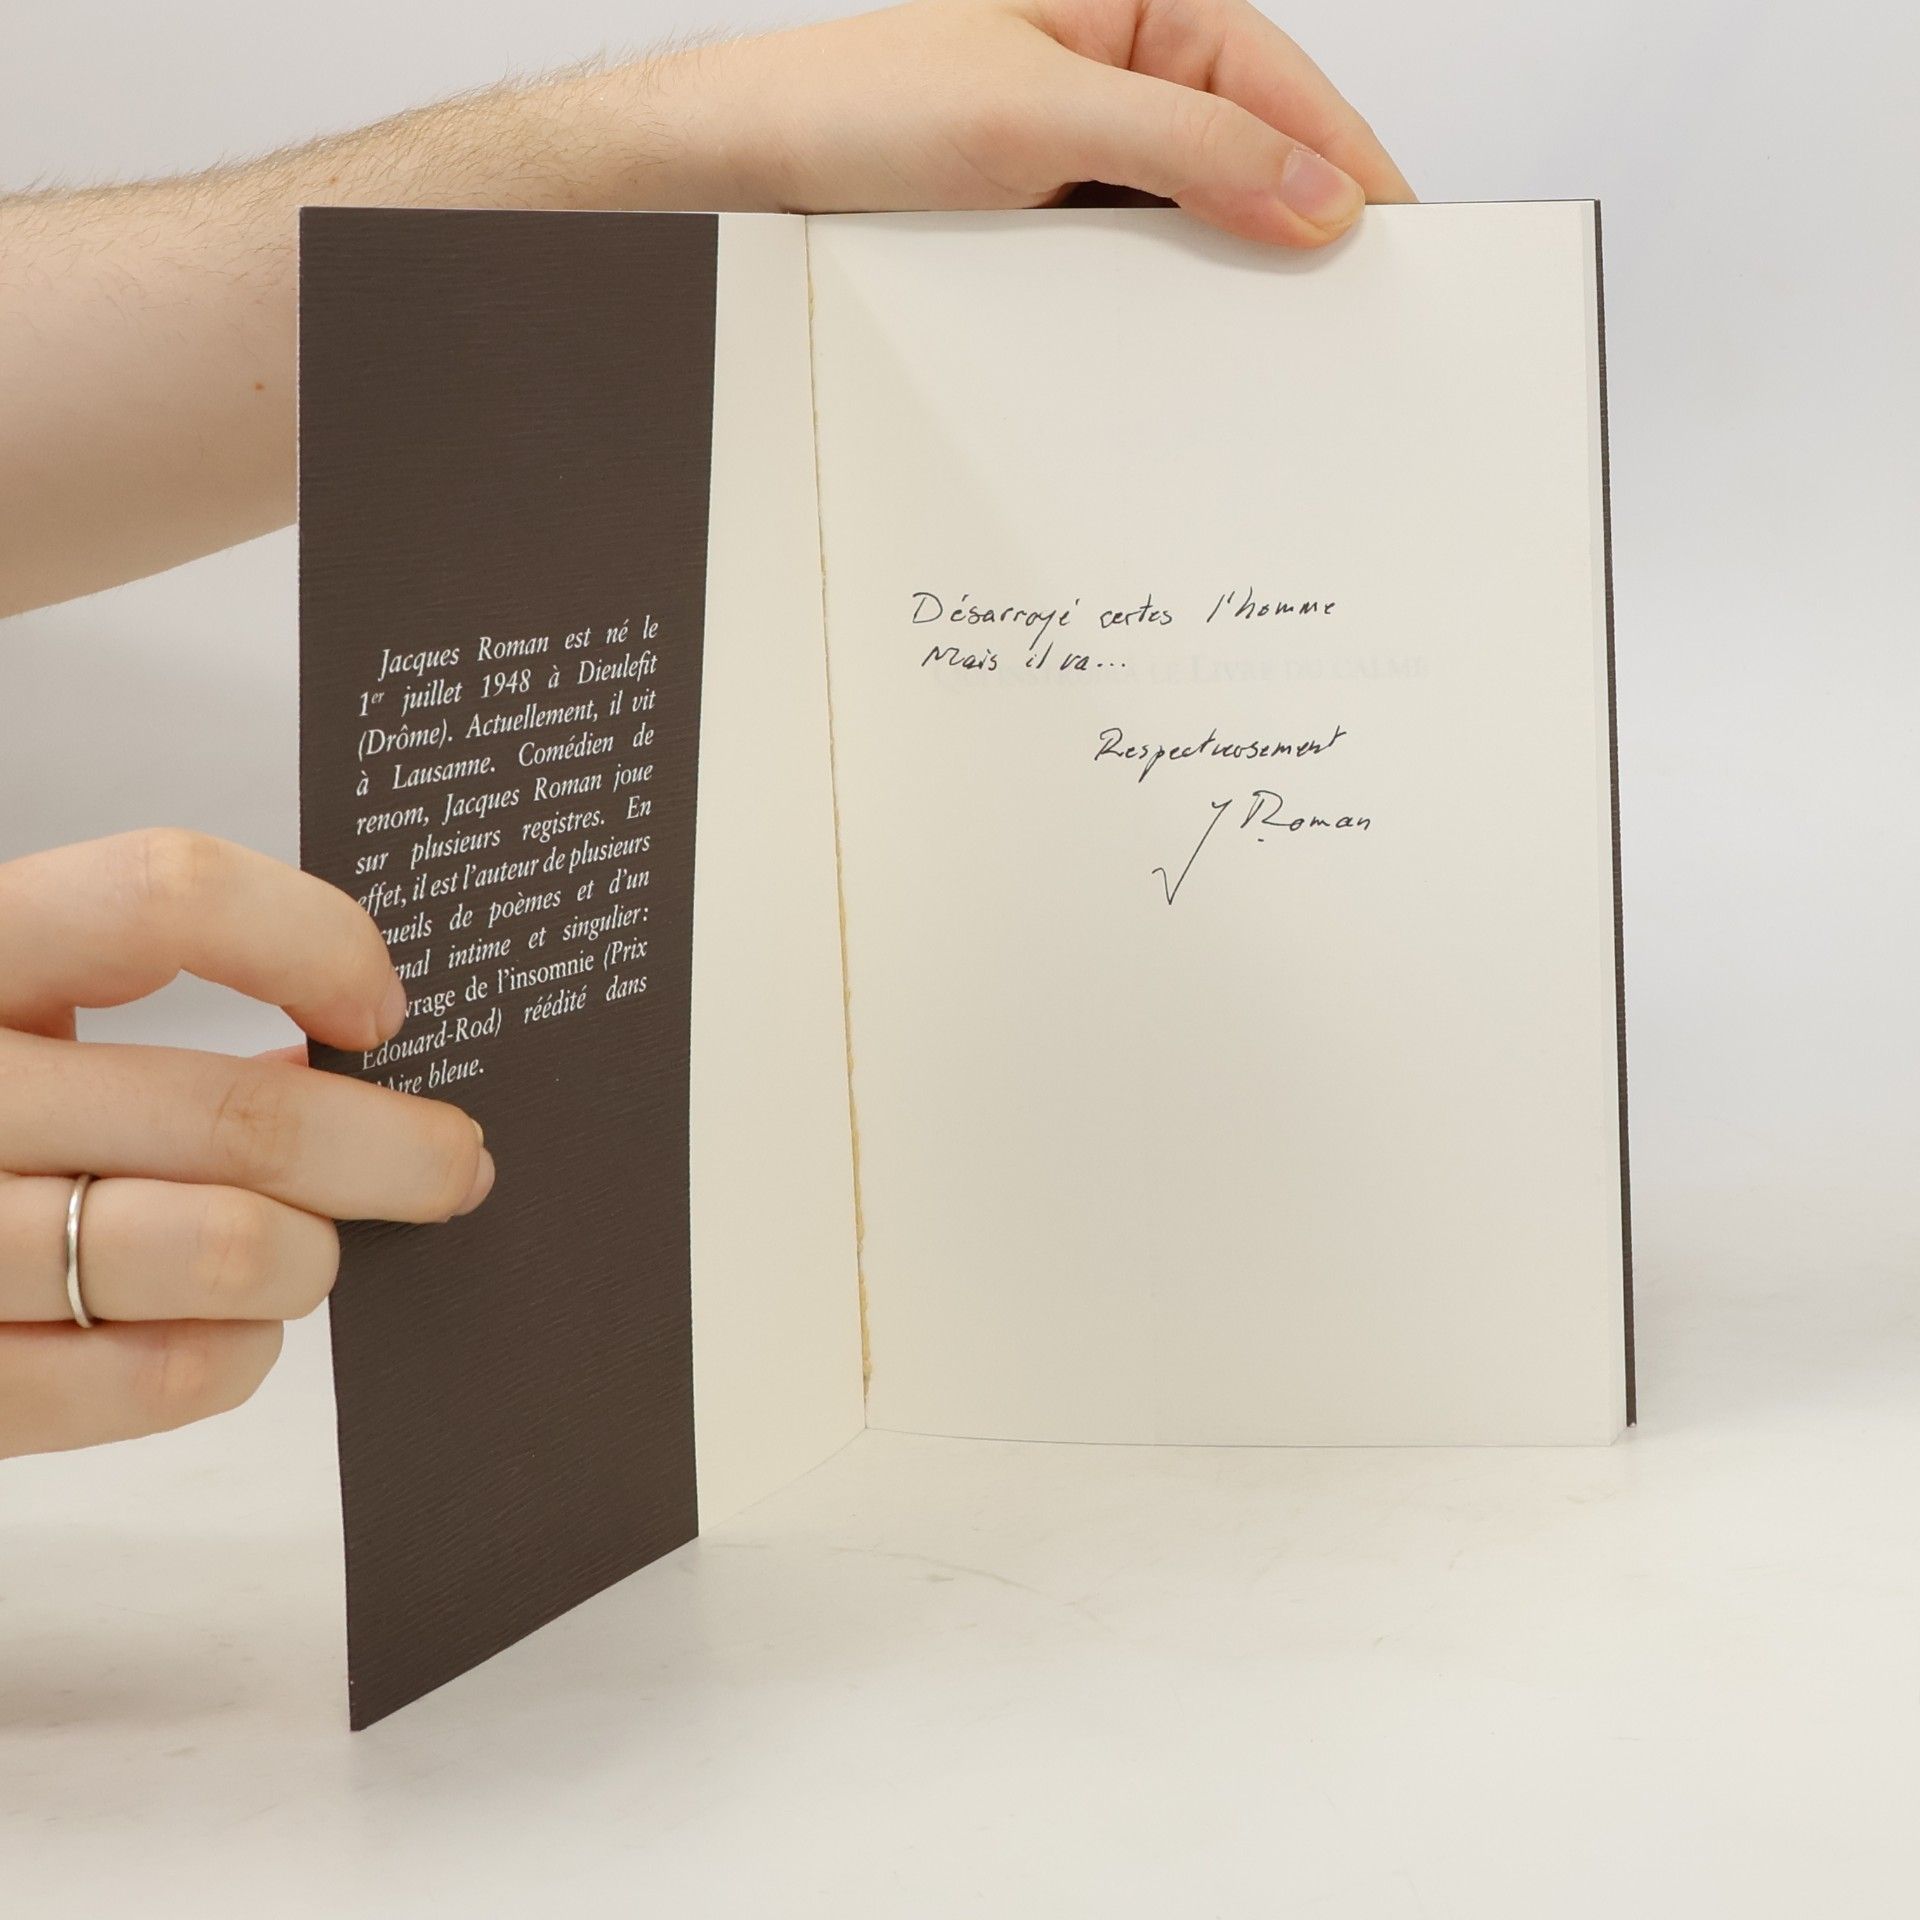 Jacques Roman est né le
1er juillet 1948 à Dieulefit
(Drôme). Actuellement, il vit
à Lausanne. Comédien de
renom, Jacques Roman joue
sur plusieurs registres. En
effet, il est l'auteur de plusieurs
cueils de poèmes et d'un
rnal intime et singulier:
vrage de l'insomnie (Prix
Edouard-Rod) réédité dans
Aire bleue.
Désarroyé certes l'homme
Mais il va...
Respectueusement
J Roman
LE LIVRE DU CALME